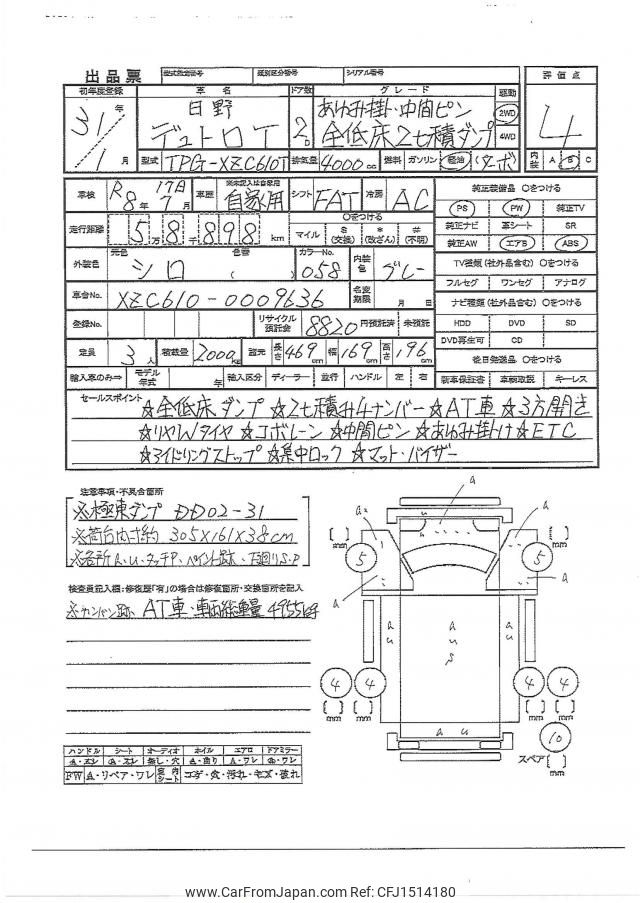 出品票 型式指定番号 類別区分番号 シリアル番号
初年度登録 車名 ドア数 グレード 駆動 評価点
31年 日野 2D あゆみ掛・中間ピン 2WD 4
1月 デュトロT 全低床2t積ダンプ 4WD
型式 TPG-XZC610T 排気量 4000cc 燃料 ガソリン 軽油 (ターボ) 内装 A B C
車検 R8年17日7月 車歴 ※未記入は自家用 自家用 シフト FAT 冷房 AC 純正装備品 〇をつける
PS PW 純正TV
走行距離 58万千898km 〇をつける マイル $(交換) *(改ざん) #(不明) 純正ナビ 革シート SR
純正AW エアB ABS
外装色 元色 シロ 色替 ( ) カラーNo. 058 内装色 グレー TV種類(社外品含む) 〇をつける
フルセグ ワンセグ アナログ
車台No. XZC610-0009636 名変期限 月 日 ナビ種類(社外品含む) 〇をつける
登録No. リサイクル預託金 8820 円預託済 未預託 HDD DVD SD
DVD再生可 CD
定員 3人 積載量 2000kg 諸元 長さ 469cm 幅 169cm 高さ 196cm 後日発送品 〇をつける
輸入車のみ⇒ モデル年式 年 輸入区分 ディーラー 並行 ハンドル 左 右 新車保証書 車輌取説 キーレス
セールスポイント ☆全低床ダンプ☆2t積み4ナンバー☆AT車☆3方開き
☆リヤWタイヤ☆コボレーン☆中間ピン☆あゆみ掛け☆ETC
☆アイドリングストップ☆集中ロック☆マット・バイザー
注意事項・不具合箇所
※極東ダンプ DD02-31
※荷台内寸約 305×161×38cm
※各所A.U.タッチP.ペイント跡.下廻りS.P
検査員記入欄:修復歴「有」の場合は修復箇所・交換箇所を記入
※カンバン跡 AT車・車両総重量4955kg
ハンドル シート オーディオ ホイル エアロ ドアミラー
A・スレ A・スレ 無し・穴 A・曲り A・ワレ A・ワレ
FW A・リペア・ワレ 室内シート コゲ・穴・汚れ・キズ・破れ
a
a
5 5
[ ]mm [ ]mm
a a
a u a u s a u
4 4 4 4
[ ]mm [ ]mm [ ]mm [ ]mm
a u
10
スペア [ ]mm
www.CarFromJapan.com Ref: CFJ1514180